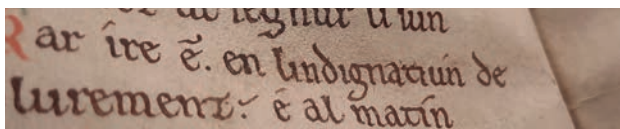 Kar ire ē. en lindignatiun de
lurement: e al matin